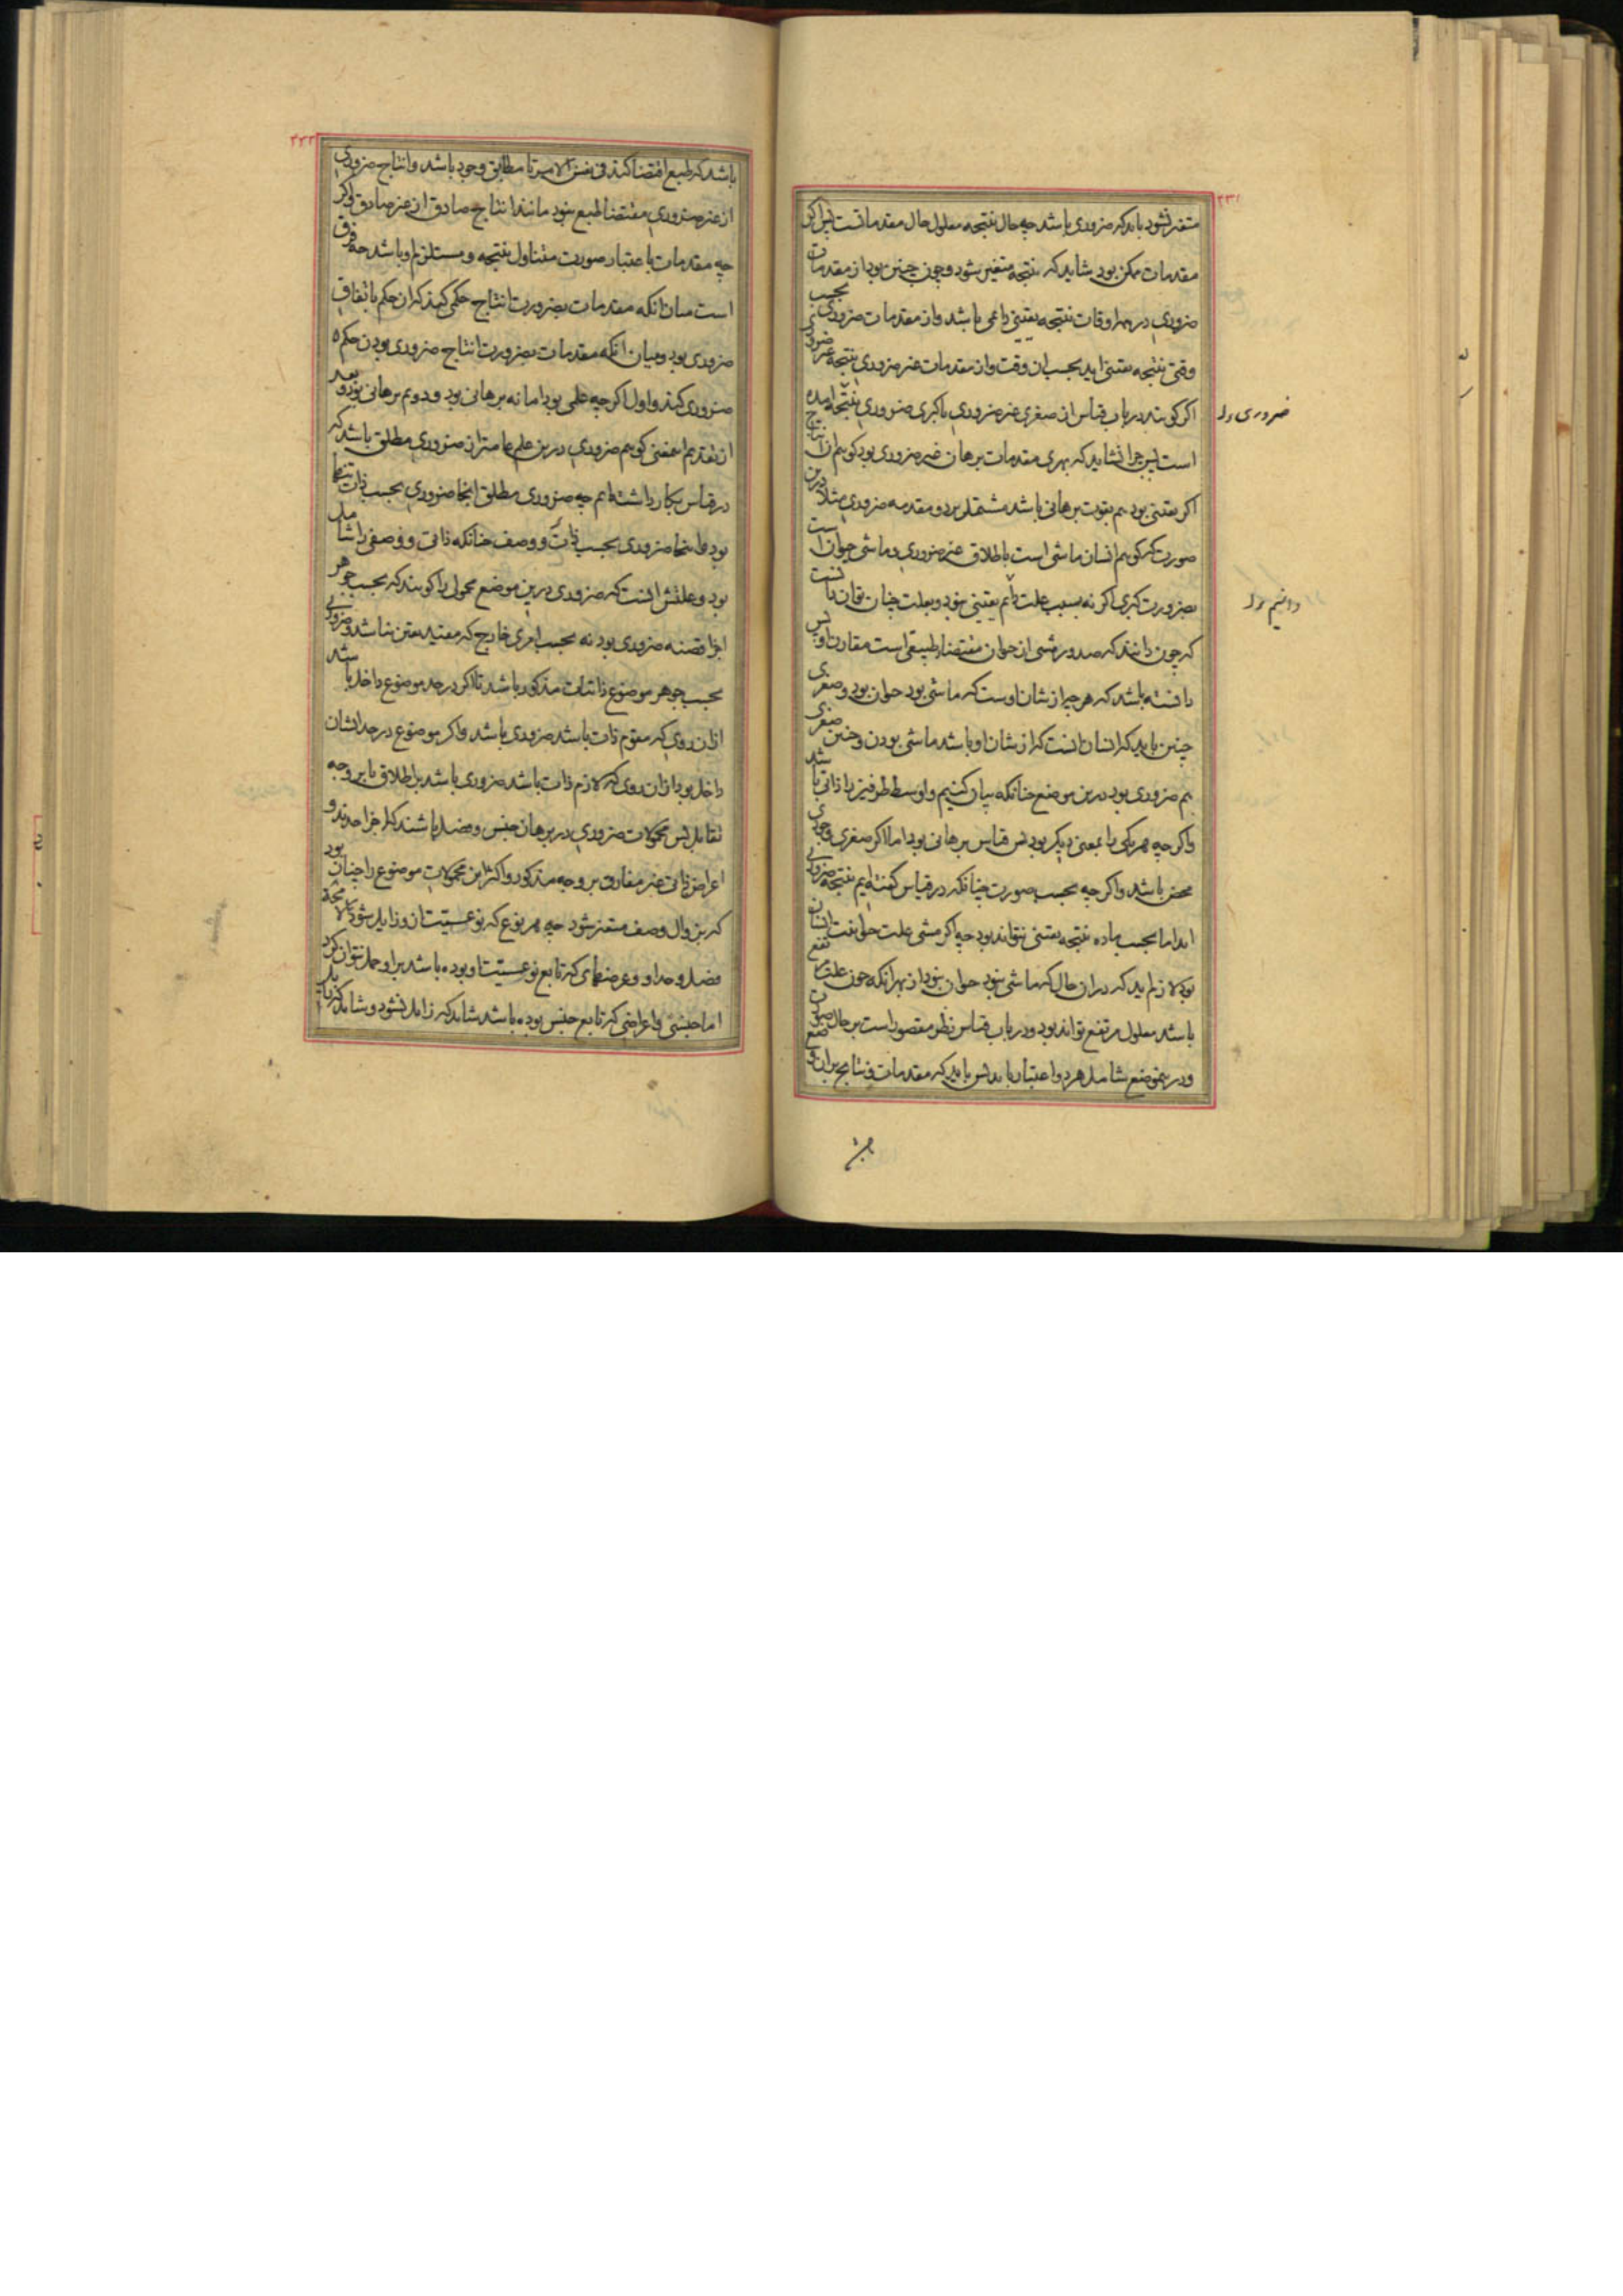 ۲۳۱
متغیر نشود باید که ضروری باشد چه حال نتیجه معلول حال مقدماتست پس اگر
مقدمات ممکن بود شاید که نتیجه متغیر شود و چون چنین بود از مقدمات
ضروری در همه اوقات نتیجه یقینی دائمی باشد و از مقدمات ضروری بحسب
وقتی نتیجه یقینی اید بحسب ان وقت و از مقدمات غیر ضروری نتیجه غیر ضروری
ضروری
اکر کویند در باب قیاس از صغری غیر ضروری با کبری ضروری نتیجه امده
است پس چرا نشاید که بهری مقدمات برهان غیر ضروری بود کوییم ان انتاج
اکر یقینی بود هم بقوت برهانی باشد مشتمل بر دو مقدمه ضروری مثلا درین
صورت که کوییم انسان ماشی است باطلاق غیر ضروری و ماشی حیوان است
بضرورت کبری اکر نه بسبب علت دائم یقینی نبود و بعلت چنان توان دانست
دائم
که چون دانند که صدور مشی از حیوان مقتضاء طبیعی است مقارن او پس
دانسته باشد که هر چه از شان اوست که ماشی بود حیوان بود و صغری
چنین باید که انسان انست که از شان او باشد ماشی بودن و چنین صغری
هم ضروری بود درین موضع چنانکه بیان کنیم و اوسط طرفین را ذاتی باشد
واکر چه هر یکی را بمعنی دیکر بود پس قیاس برهانی بود اما اکر صغری وجودی
محض باشد واکر چه بحسب صورت چنانکه در قیاس کفته‌ایم نتیجه ضروری
اید اما بحسب ماده نتیجه یقینی نتواند بود چه اکر مشی علت حیوانیت انسان
بود لازم اید که در ان حال که ماشی نبود حیوان نبود از بهر انکه چون علت مرتفع
باشد معلول مرتفع تواند بود و در باب قیاس نظر مقصور است بر حال صورت
و درین موضع شامل هر دو اعتبار باید پس باید که مقدمات و نتایج بران وضع
۲۳۲
باشد که طبع اقتضا کند فی نفس الامر تا مطابق وجود باشد و انتاج ضروری
از غیر ضروری مقتضا طبع نبود مانند انتاج صادق از غیر صادق واکر
چه مقدمات باعتبار صورت متناول نتیجه و مستلزم او باشد چه فرق
است میان انکه مقدمات بضرورت انتاج حکمی کند که ان حکم باتفاق
ضروری بود و میان انکه مقدمات بضرورت انتاج ضروری بودن حکم
ضروری کند و اول اکر چه علمی بود اما نه برهانی بود و دویم برهانی بود و بعد
از تقدیم این معنی کوییم ضروری درین علم عامتر از ضروری مطلق باشد که
در قیاس بکار داشته‌ایم چه ضروری مطلق انجا ضروری بحسب ذات تنها
بود و اینجا ضروری بحسب ذات و وصف چنانکه ذاتی و وصفی را شامل
بود و علتش انست که ضروری درین موضع محمول را کویند که بحسب جوهر
اجزا قضیه ضروری بود نه بحسب امری خارج که مفید یقین نباشد و ضروری
بحسب جوهر موضوع ذاتیات مذکور باشد تا اکر در حد موضوع داخل باشد
ازان روی که مقوم ذات باشد ضروری باشد واکر موضوع در حد ایشان
داخل بود ازان روی که لازم ذات باشد ضروری باشد بر اطلاق یا بر وجه
تقابل پس محمولات ضروری در برهان جنس و فصل باشند که اجزا حدند و
اعراض ذاتی غیر مفارق بر وجه مذکور و اکثر این محمولات موضوع را چنان بود
که بزوال وصف متغیر شود چه هر نوع که نوعیتت ازو زایل شود لا محاله
فصل و حد او و عرضهای که تابع نوعیتت او بوده باشد بر او حمل نتوان کرد
اما جنسی و اعراضی که تابع جنس بوده باشد شاید که زایل نشود و شاید که زایل